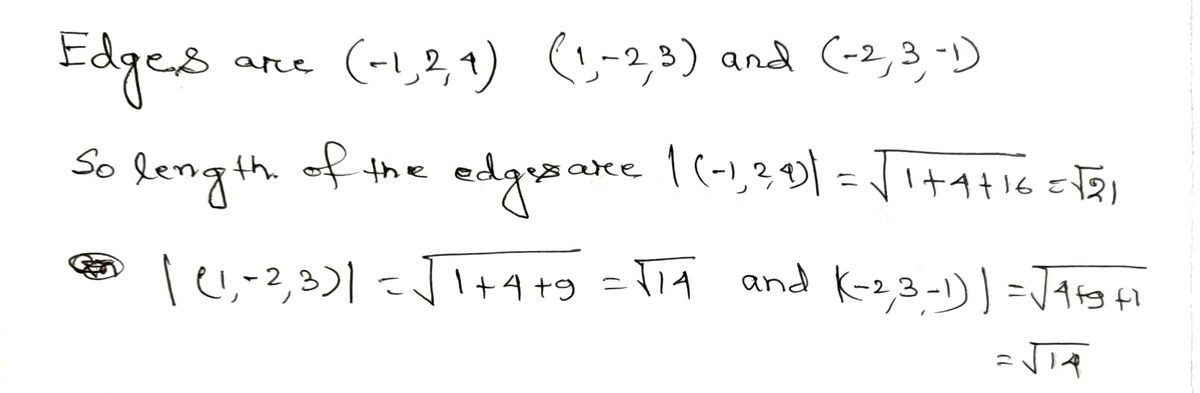 Edges are (-1,2,4) (1,-2,3) and (-2,3,-1)
So length of the edges are |(-1,2,4)| = √1+4+16 = √21
|(1,-2,3)| = √1+4+9 = √14 and |(-2,3,-1)| = √4+9+1
= √14